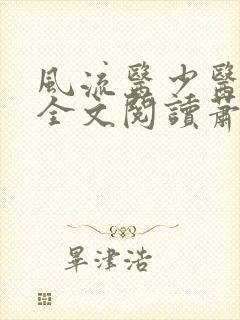 風流醫少醫
全文閱讀蕭
畢津浩